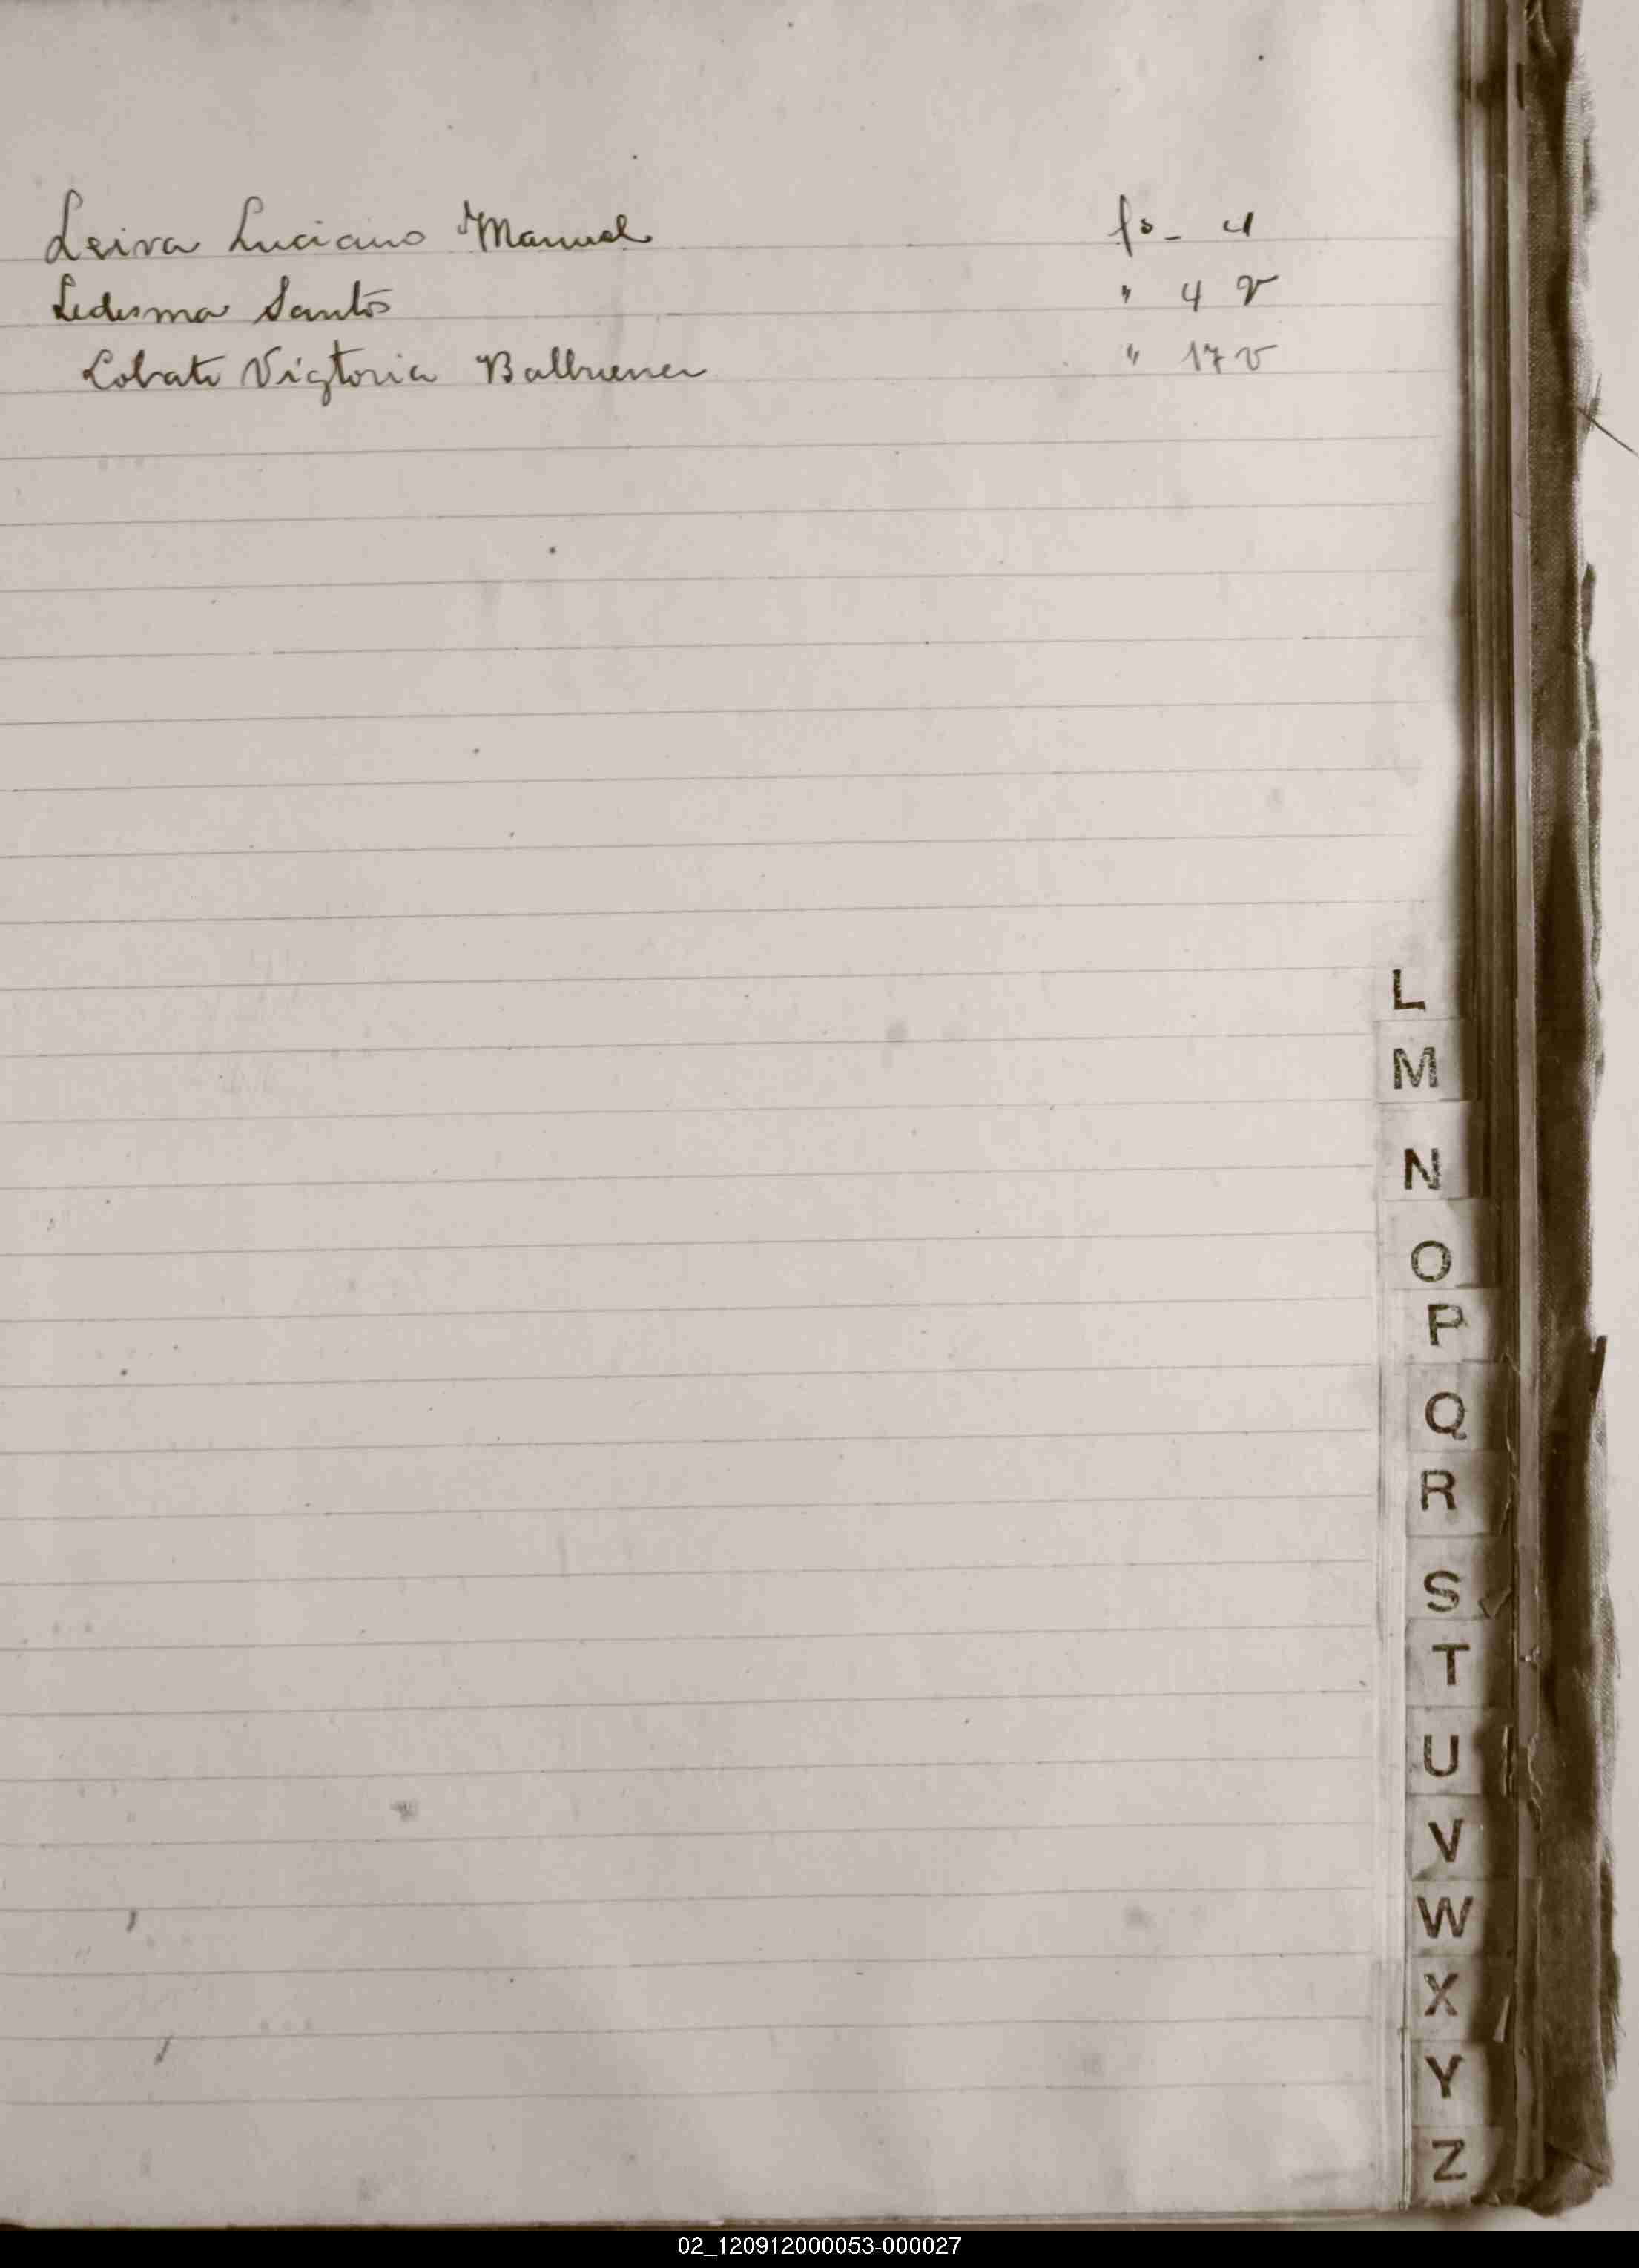 Leiva Luciano Manuel fo- 4
Ledesma Santos " 4 v
Lobato Vigtoria Balbuena " 17 v
L
M
N
O
P
Q
R
S
T
U
V
W
X
Y
Z
02_120912000053-000027